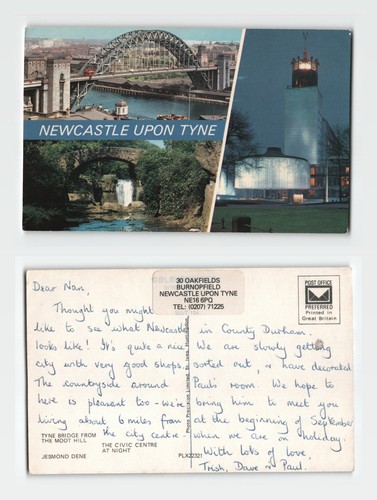 NEWCASTLE UPON TYNE
30 OAKFIELDS
BURNOPFIELD
NEWCASTLE UPON TYNE
NE16 6PQ
TEL: (0207) 71225
POST OFFICE
PREFERRED
Printed in
Great Britain
Dear Nan,
Thought you might
like to see what Newcastle
looks like! It's quite a nice
city with very good shops.
The countryside around
here is pleasant too - we're
living about 6 miles from
the city centre -
in County Durham.
We are slowly getting
sorted out, & have decorated
Paul's room. We hope to
bring him to meet you
at the beginning of September
when we are on holiday.
With lots of love,
Trish, Dave & Paul.
TYNE BRIDGE FROM
THE MOOT HILL
THE CIVIC CENTRE
AT NIGHT
JESMOND DENE
PLX22321